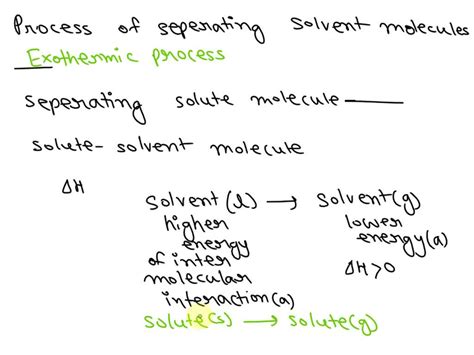 Process of seperating solvent molecules
Exothermic process
seperating solute molecule
solute-solvent molecule
ΔH
solvent(l) → solvent(g)
higher lower
energy energy(a)
of inter
molecular ΔH>0
interaction(a)
solute(s) → solute(g)